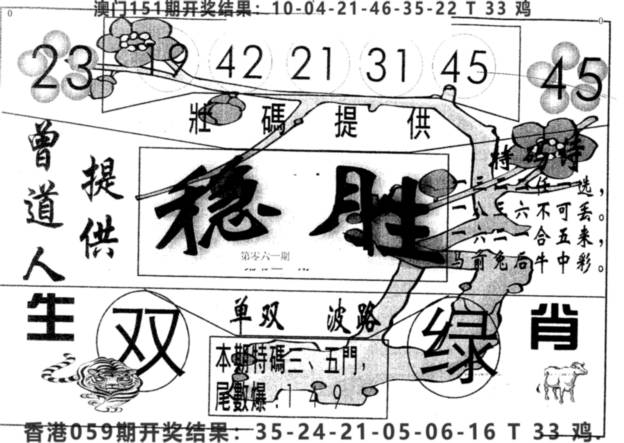 澳门151期开奖结果：10-04-21-46-35-22 T 33 鸡
23 19 42 21 31 45 45
壯碼提供
曾道人
提供
稳胜
第零六一期
特码诗
一二二四任一选，
一八三六不可丢。
一六二一合五来，
马前兔后牛中彩。
生 双
单双 波路
绿 肖
本期特碼三、五門，
尾數爆：149
香港059期开奖结果：35-24-21-05-06-16 T 33 鸡